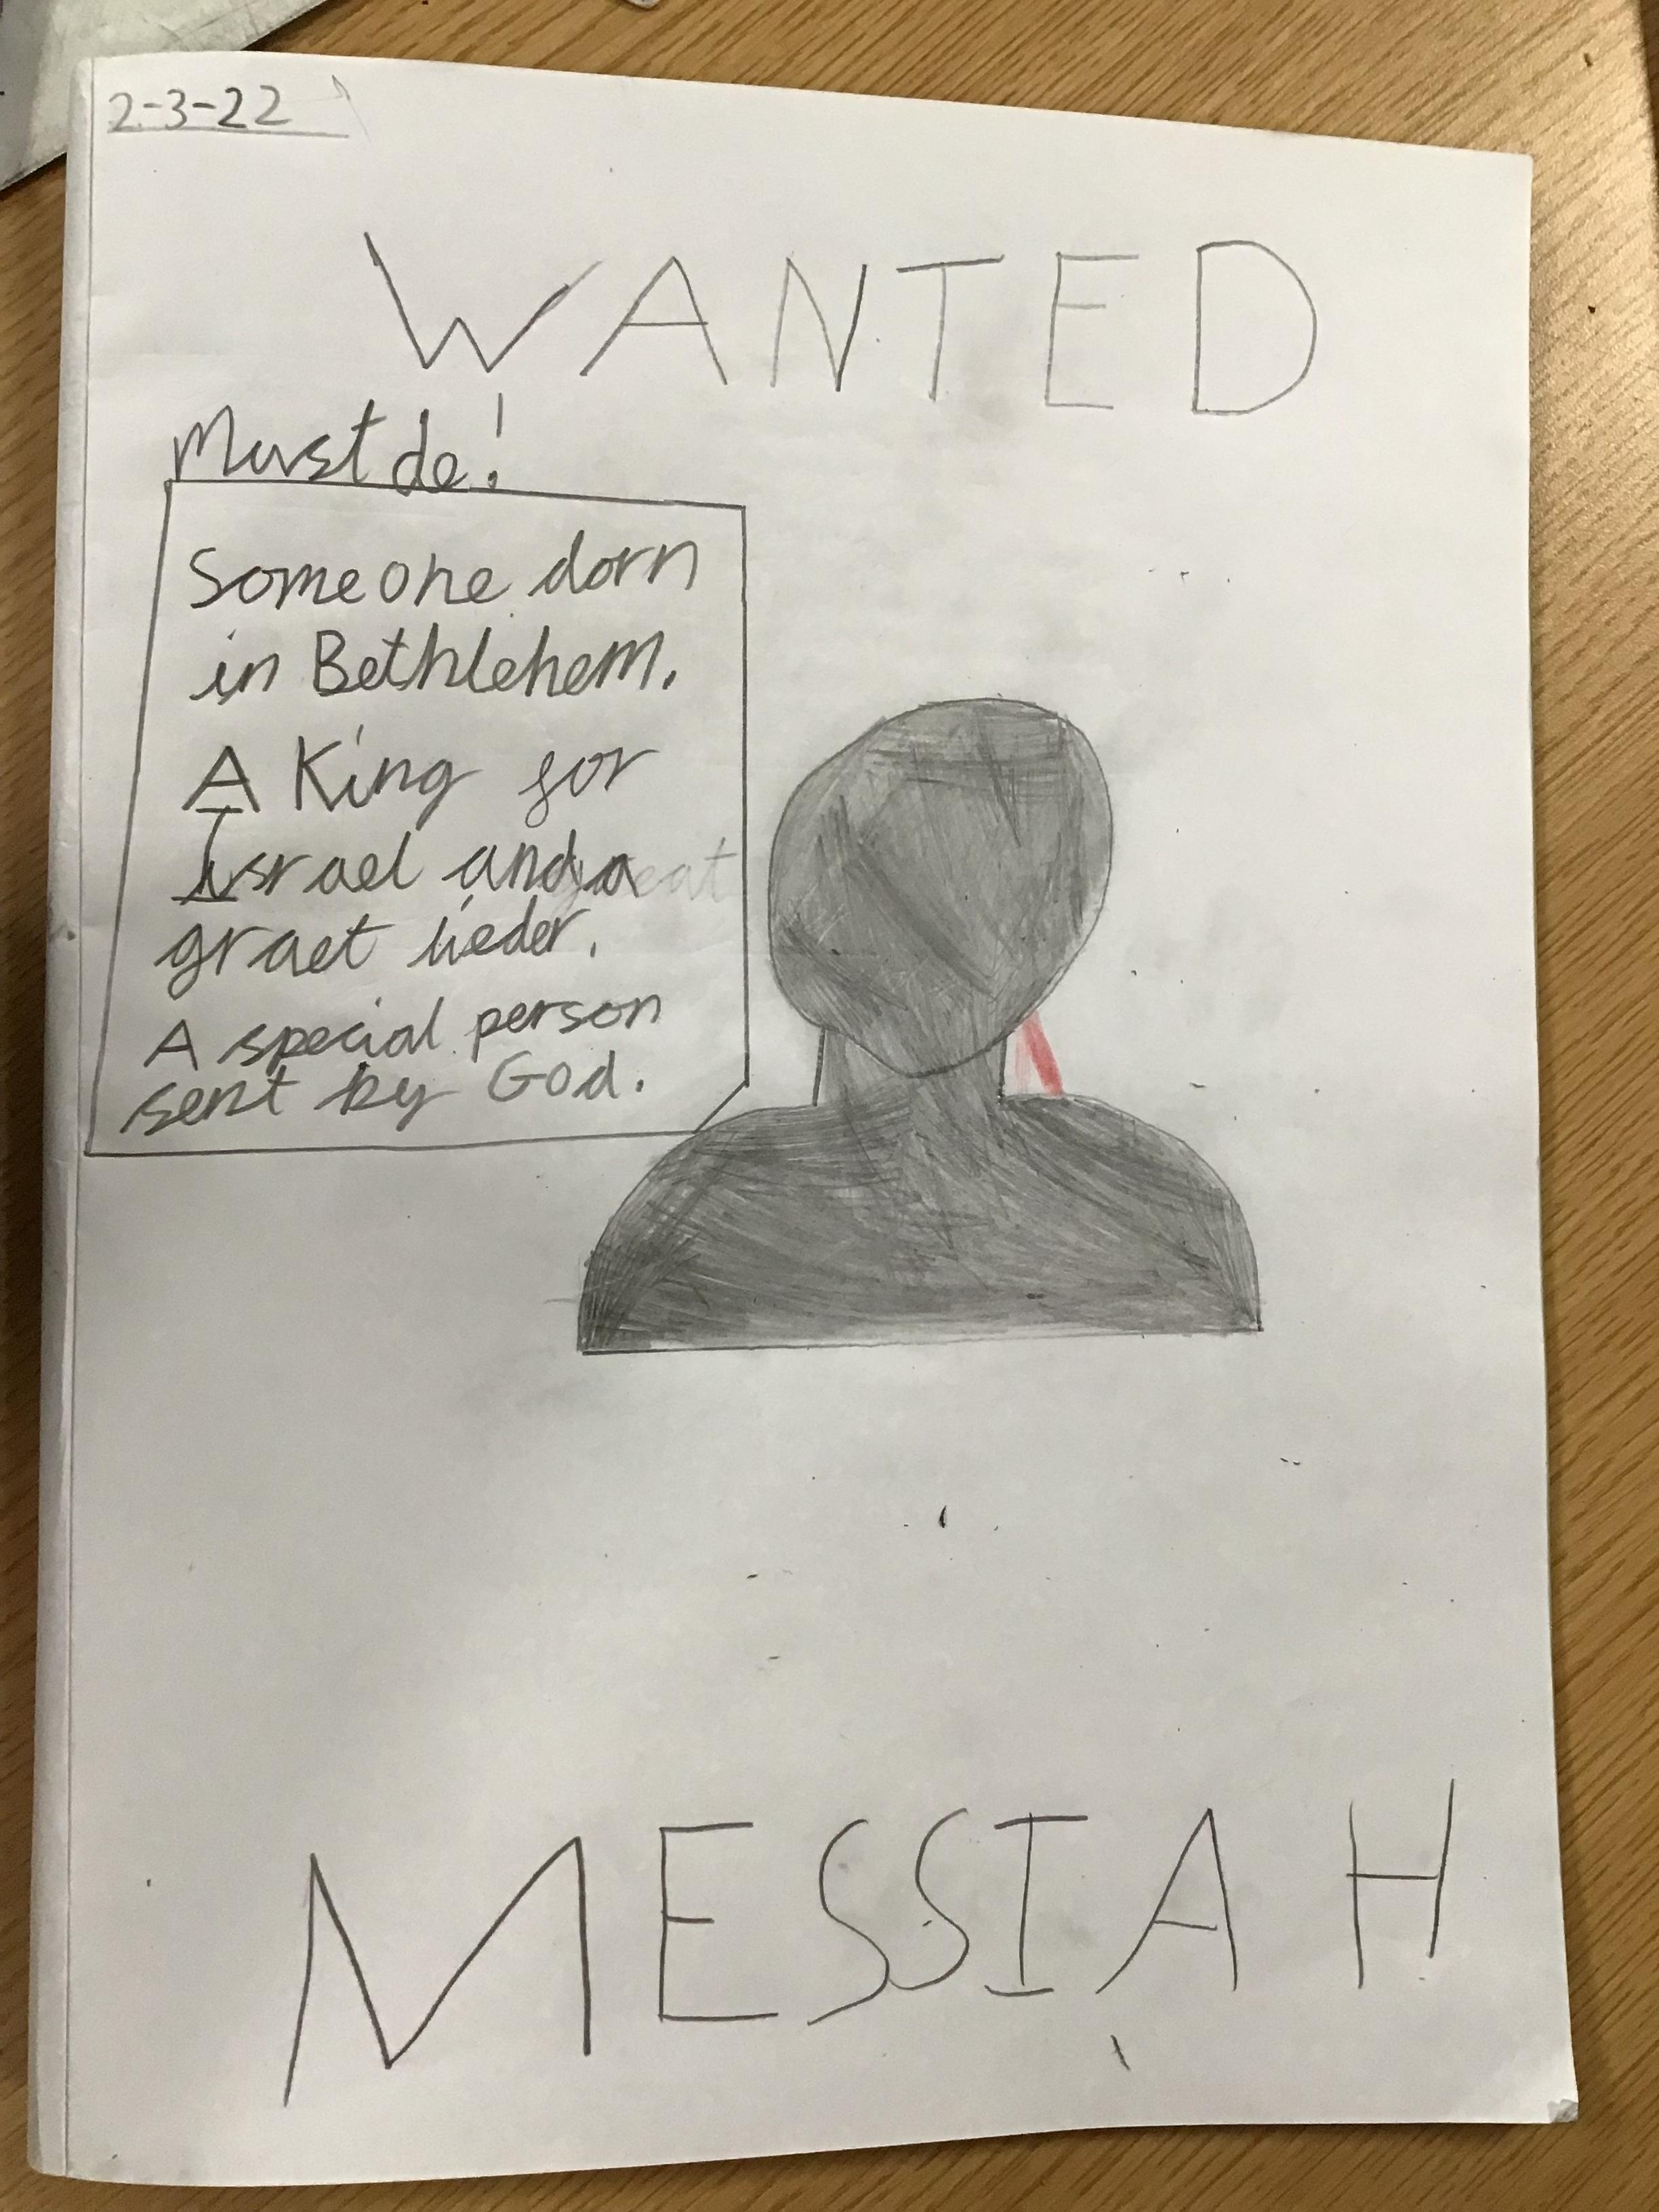 2-3-22
WANTED
Must de!
Someone dorn
in Bethlehem.
A King for
Israel and a
graet lieder.
A special person
sent by God.
MESSIAH